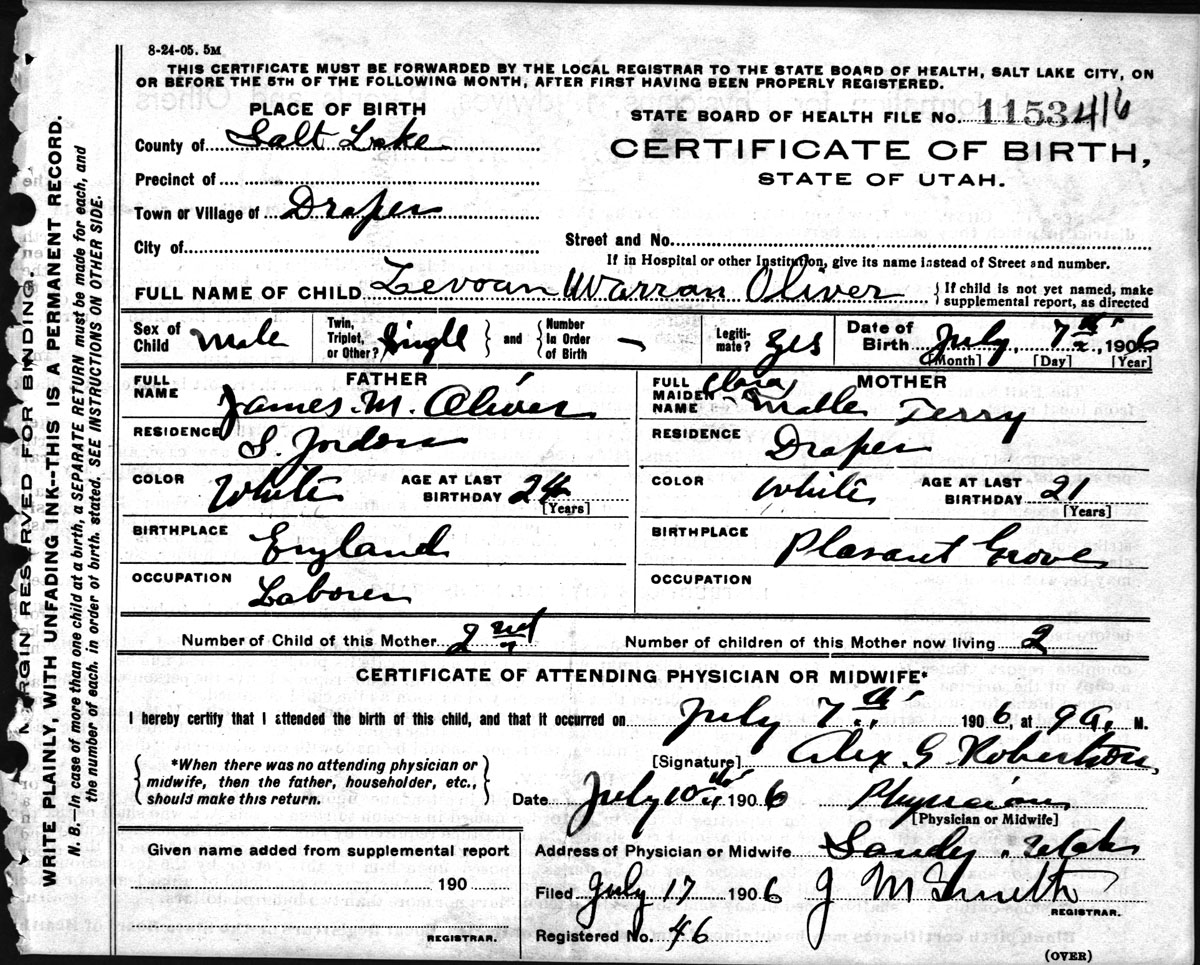 8-24-05. 5M
THIS CERTIFICATE MUST BE FORWARDED BY THE LOCAL REGISTRAR TO THE STATE BOARD OF HEALTH, SALT LAKE CITY, ON
OR BEFORE THE 5TH OF THE FOLLOWING MONTH, AFTER FIRST HAVING BEEN PROPERLY REGISTERED.
PLACE OF BIRTH
STATE BOARD OF HEALTH FILE No. 1153416
County of Salt Lake
CERTIFICATE OF BIRTH,
STATE OF UTAH.
Precinct of
Town or Village of Draper
City of
Street and No.
If in Hospital or other Institution, give its name instead of Street and number.
FULL NAME OF CHILD Levoun Warran Oliver { If child is not yet named, make
supplemental report, as directed
Sex of Child Male Twin, Triplet, or Other? Single } and { Number In Order of Birth — Legitimate? Yes Date of Birth July, 7th, 1906
[Month] [Day] [Year]
FATHER
FULL NAME James. M. Oliver
RESIDENCE S. Jordan
COLOR White AGE AT LAST BIRTHDAY 24
[Years]
BIRTHPLACE England
OCCUPATION Laborer
MOTHER
FULL MAIDEN NAME Clara Mable Terry
RESIDENCE Draper
COLOR White AGE AT LAST BIRTHDAY 21
[Years]
BIRTHPLACE Plasant Grove
OCCUPATION
Number of Child of this Mother 2nd Number of children of this Mother now living 2
CERTIFICATE OF ATTENDING PHYSICIAN OR MIDWIFE*
I hereby certify that I attended the birth of this child, and that it occurred on July 7th 1906, at 9 A. M.
[Signature] Alex. G. Robertson,
{ *When there was no attending physician or
midwife, then the father, householder, etc.,
should make this return. }
Date July 10th 1906 Physician
[Physician or Midwife]
Address of Physician or Midwife Sandy, Utah
Given name added from supplemental report
190
REGISTRAR.
Filed July 17 1906 J M Smith
REGISTRAR.
Registered No. 46
(OVER)
MARGIN RESERVED FOR BINDING.
WRITE PLAINLY, WITH UNFADING INK--THIS IS A PERMANENT RECORD.
N. B.—In case of more than one child at a birth, a SEPARATE RETURN must be made for each, and
the number of each, in order of birth, stated. SEE INSTRUCTIONS ON OTHER SIDE.